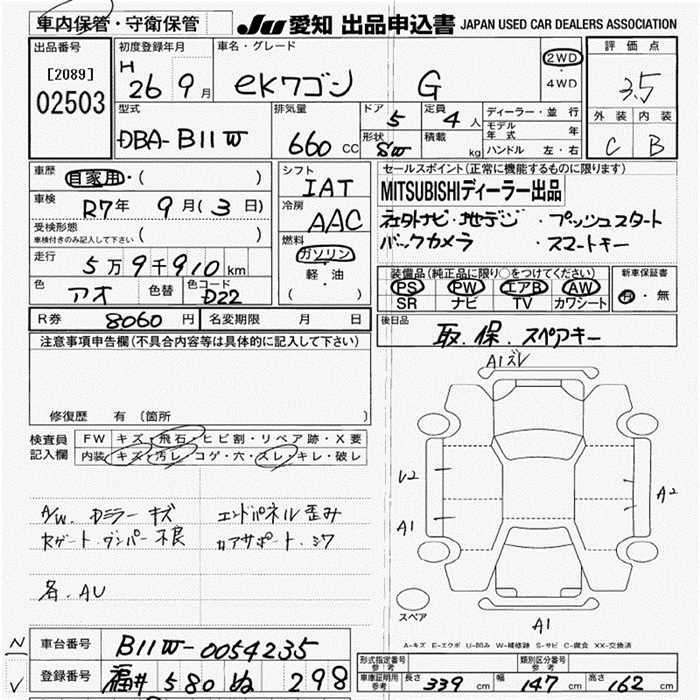 車内保管・守衛保管
JU 愛知 出品申込書 JAPAN USED CAR DEALERS ASSOCIATION
出品番号
[2089]
02503
初度登録年月
H 26 9月
車名・グレード
eKワゴン G
2WD
・
4WD
評価点
3.5
外装 内装
C B
型式
DBA-B11W
排気量
660 CC
ドア 5
形状 SW
定員 4人
積載 kg
ディーラー・並行
モデル年式 年
ハンドル 左・右
車歴
自家用・( )
車検
R7年 9月(3日)
受検形態
車検付きのみ記入して下さい ( )
走行
5万9千910km
色 アオ 色替 色コード D22
シフト
IAT
冷房
AAC
燃料
ガソリン
・
軽・油
( )
セールスポイント(正常に機能するものに限ります)
MITSUBISHIディーラー出品
社外ナビ・地デジ ・プッシュスタート
バックカメラ ・スマートキー
装備品(純正品に限り○をつけてください)
PS PW エアB AW
SR ナビ TV カワシート
新車保証書
有・無
R券 8060円 名変期限 月 日
後日品
取.保.スペアキー
注意事項申告欄(不具合内容等は具体的に記入して下さい)
修復歴 有〔箇所 〕
検査員記入欄
FW キズ・飛石・ヒビ割・リペア跡・X要
内装 キズ・汚レ・コゲ・穴・スレ・キレ・破レ
A/W.ドアミラーキズ エンドパネル歪み
Rゲート・ダンパー不良 コアサポート・シワ
各.AU
A1ズレ
U2
A1
A2
A1
スペア
A-キズ E-エクボ U-凹み W-補修跡 S-サビ C-腐食 XX-交換済
N
V
車台番号 B11W-0054235
登録番号 福井 580 ぬ 298
形式指定番号 参考 類別区分番号 参考
車庫証明用 参考 長さ 339 cm 幅 147 cm 高さ 162 cm